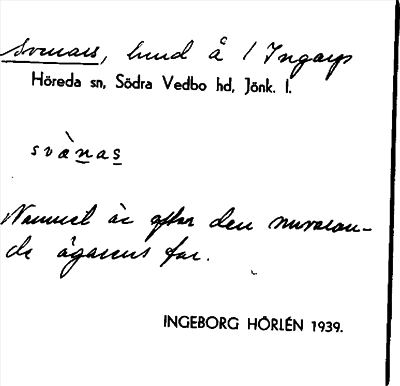 Svenars, lund å 1 Ingarp
Höreda sn, Södra Vedbo hd, Jönk. l.
svànas
Namnet är efter den nuvaran-
de ägarens far.
INGEBORG HÖRLÉN 1939.